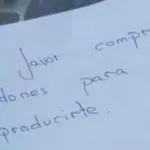 Javor compr
dones para
producirte.